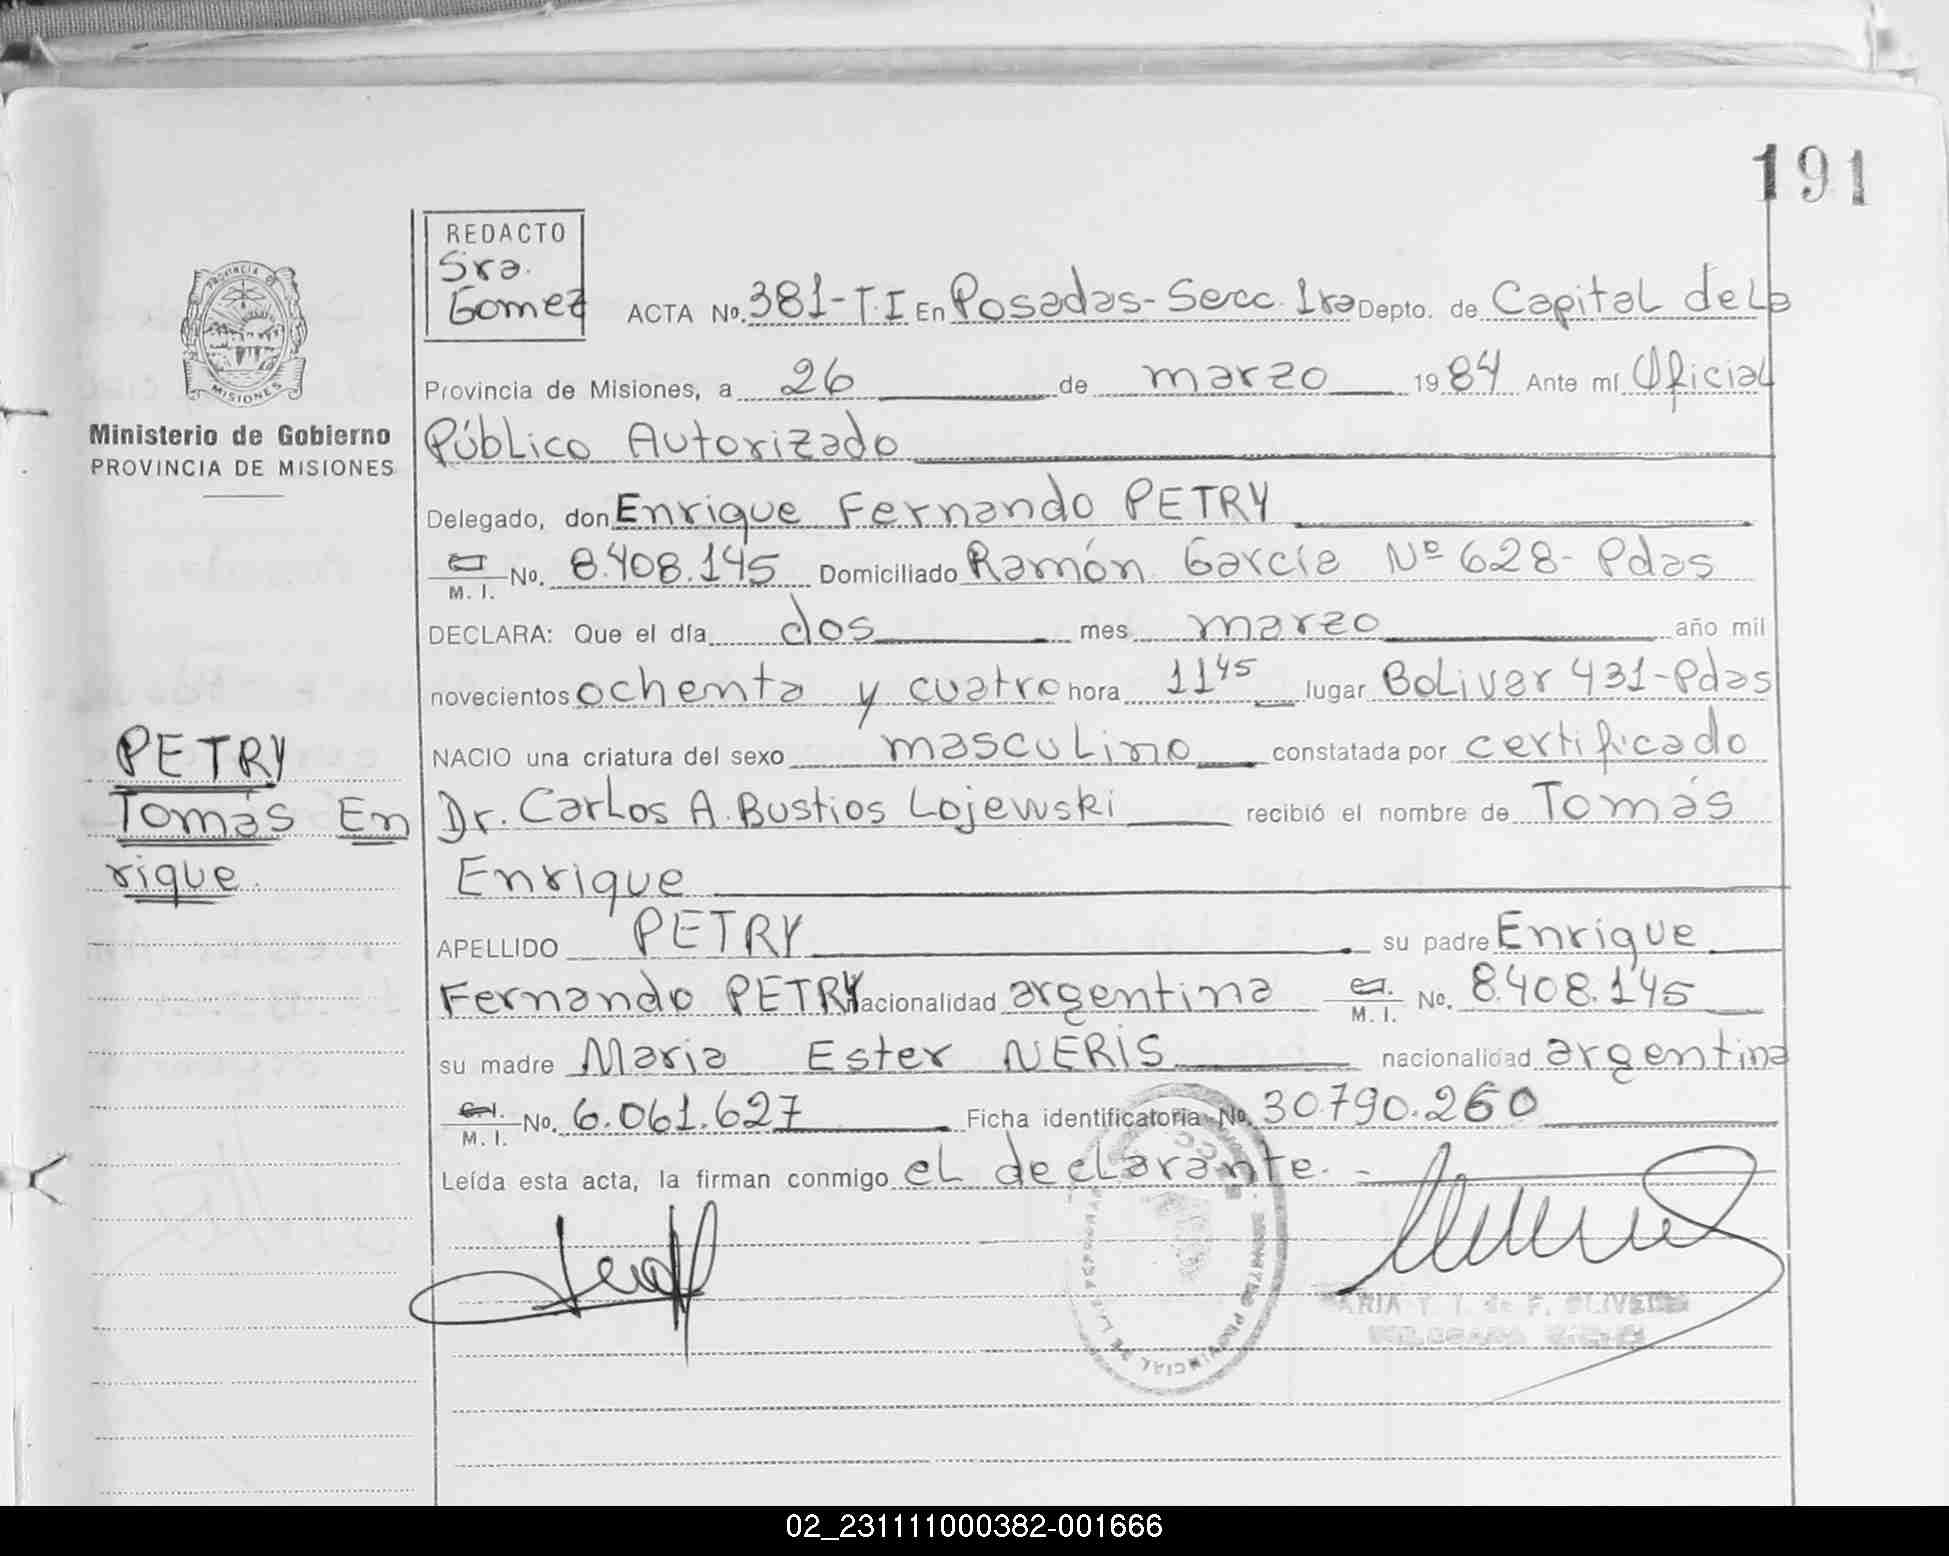 191
REDACTO
Sra.
Gomez
ACTA No. 381-T.I En Posadas-Secc. 1ra Depto. de Capital de la
Provincia de Misiones, a 26 de marzo 1984 Ante mí Oficial
Público Autorizado
Delegado, don Enrique Fernando PETRY
M. I. No. 8.408.145 Domiciliado Ramón García Nº 628- Pdas
DECLARA: Que el día dos mes marzo año mil
novecientos ochenta y cuatro hora 11 45 lugar Bolivar 431-Pdas
NACIO una criatura del sexo masculino constatada por certificado
Dr. Carlos A. Bustios Lojewski recibió el nombre de Tomás
Enrique
APELLIDO PETRY su padre Enrique
Fernando PETRY nacionalidad argentina M. I. No. 8.408.145
su madre Maria Ester NERIS nacionalidad argentina
C.I. M. I. No. 6.061.627 Ficha identificatoria No. 30.790.260
Leída esta acta, la firman conmigo el declarante.-
PROVINCIA DE MISIONES
Ministerio de Gobierno
PROVINCIA DE MISIONES
PETRY
Tomás En
rique
REGISTRO PROVINCIAL DE LAS PERSONAS
F. OLIVEIRA
02_231111000382-001666